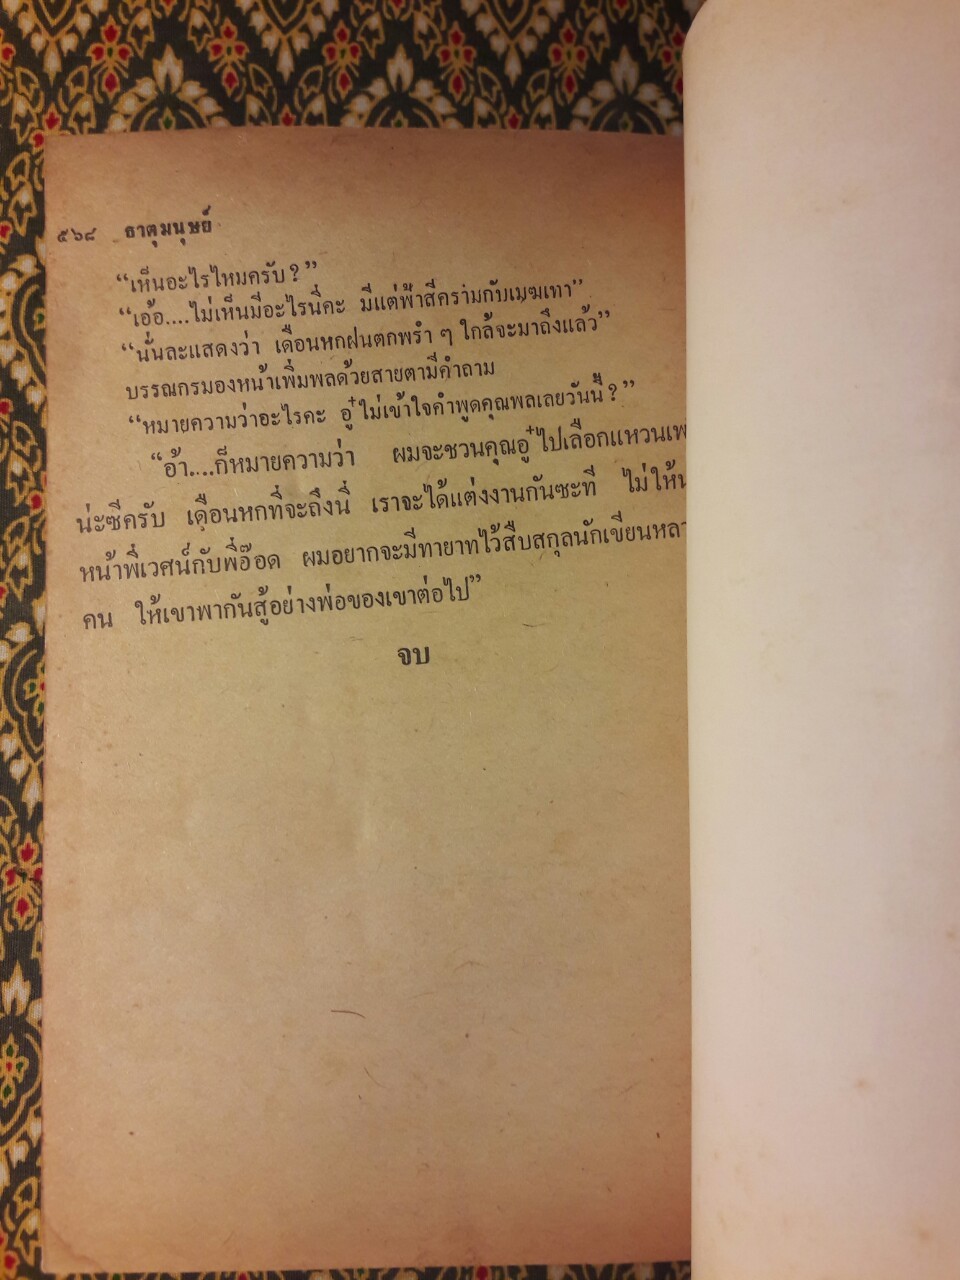 ๕๖๘ ธาตุมนุษย์
“เห็นอะไรไหมครับ ?”
“เอ้อ....ไม่เห็นมีอะไรนี่คะ มีแต่ฟ้าสีครามกับเมฆเทา”
“นั่นละแสดงว่า เดือนหกฝนตกพรำ ๆ ใกล้จะมาถึงแล้ว”
บรรณกรมองหน้าเพิ่มพลด้วยสายตามีคำถาม
“หมายความว่าอะไรคะ อู๋ไม่เข้าใจคำพูดคุณพลเลยวันนี้ ?”
“อ้า....ก็หมายความว่า ผมจะชวนคุณอู๋ไปเลือกแหวนเพ
น่ะซีครับ เดือนหกที่จะถึงนี้ เราจะได้แต่งงานกันซะที ไม่ให้
หน้าพี่เวศน์กับพี่อ๊อด ผมอยากจะมีทายาทไว้สืบสกุลนักเขียนหลา
คน ให้เขาพากันสู้อย่างพ่อของเขาต่อไป”
จบ